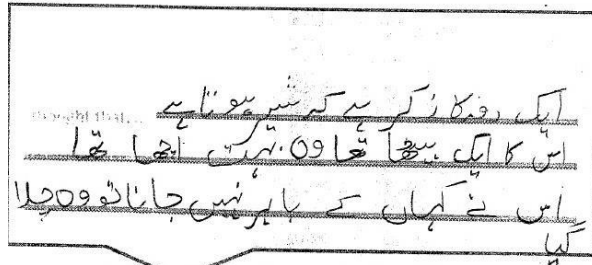 ایک دفعکا زکر ہے کہ شیر ہوتا ہے
اس کا ایک بیٹھا تھا وہ بہت اچھا تھا
اس نے کہاں کے باہر نہیں جانا تو وہ چلا
گیا